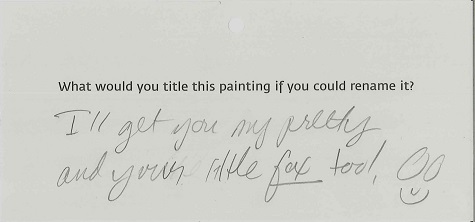 What would you title this painting if you could rename it?
I'll get you my pretty
and your little fox too!